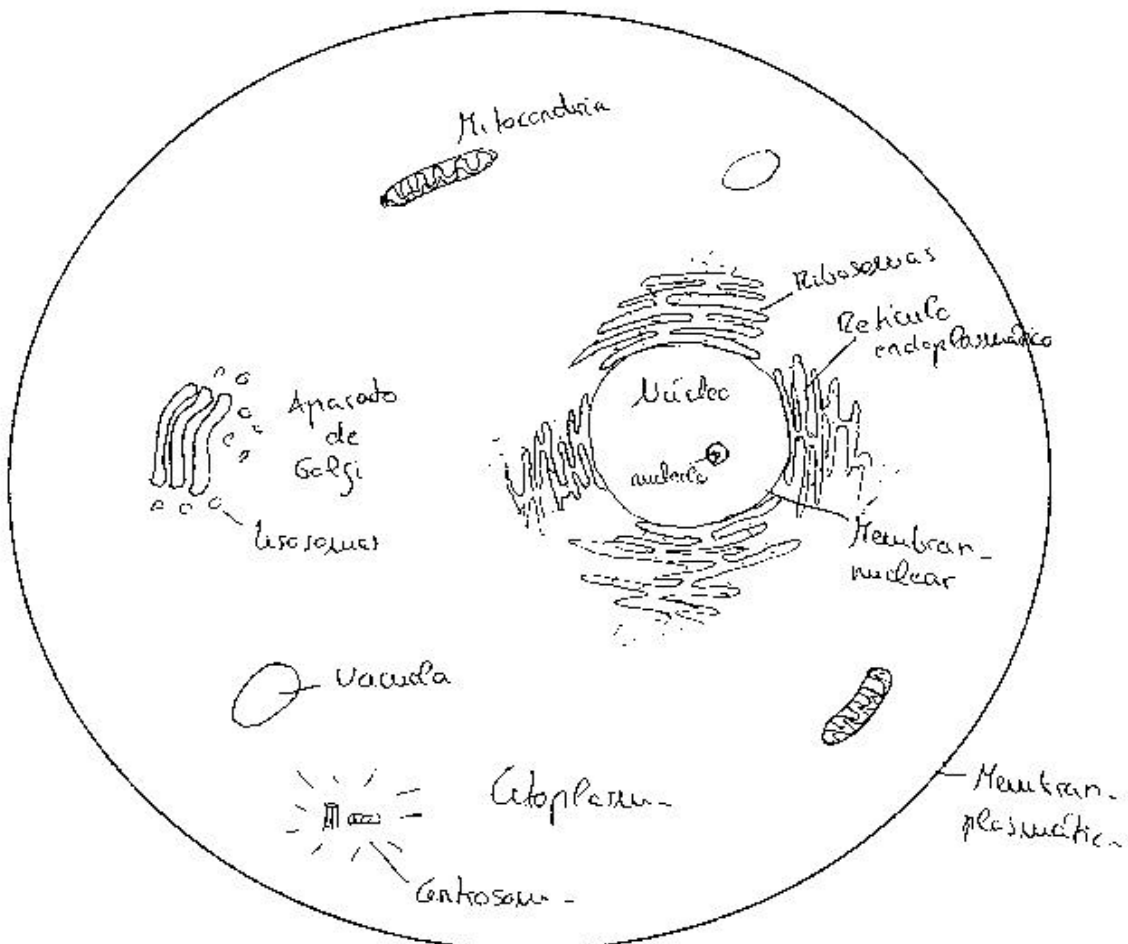 Mitocondria
Ribosomas
Retículo
endoplasmático
Aparato
de
Golgi
Núcleo
nucleolo
Lisosomas
Membrana
nuclear
Vacuola
Citoplasma
Membrana
plasmática
Centrosoma